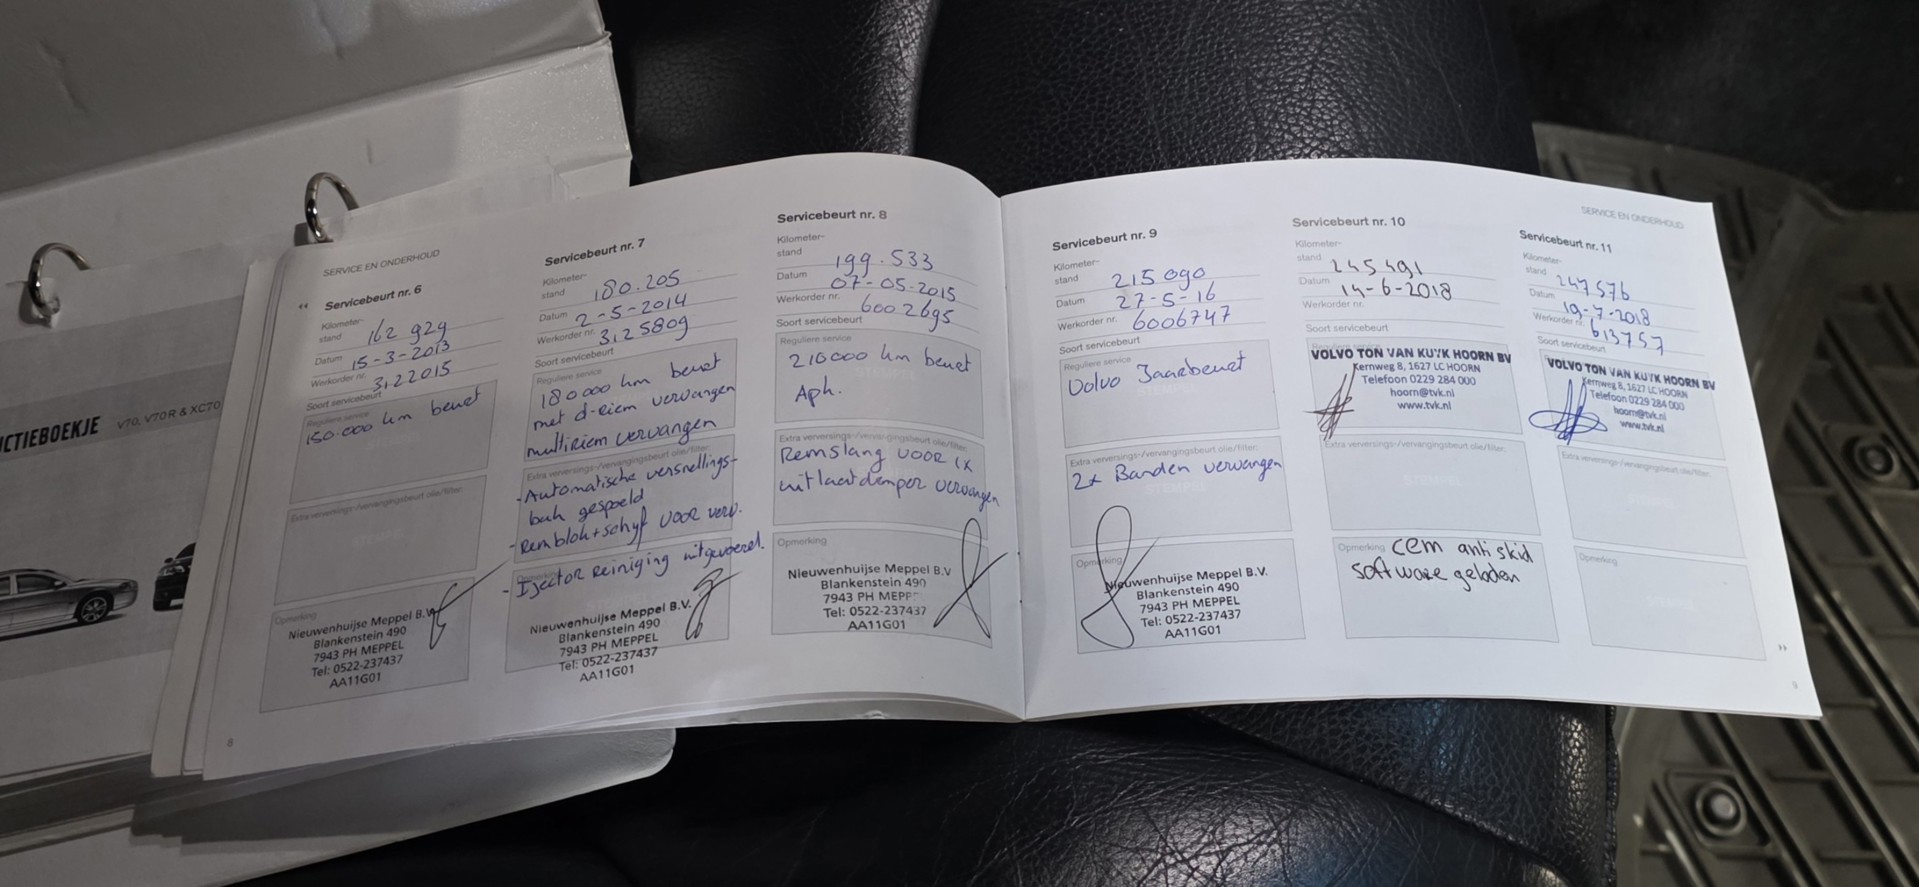 CTIEBOEKJE V70, V70 R & XC70
SERVICE EN ONDERHOUD
Servicebeurt nr. 6
Kilometer-
stand 162 929
Datum 15-3-2013
Werkorder nr. 3122015
Soort servicebeurt
Reguliere service
150.000 km beurt
Extra verversings-/vervangingsbeurt olie/filter:
Opmerking
Nieuwenhuijse Meppel B.V.
Blankenstein 490
7943 PH MEPPEL
Tel: 0522-237437
AA11G01
8
Servicebeurt nr. 7
Kilometer-
stand 180.205
Datum 2-5-2014
Werkorder nr. 3125809
Soort servicebeurt
Reguliere service
180000 km beurt
met d-riem vervangen
multiriem vervangen
Extra verversings-/vervangingsbeurt olie/filter:
- Automatische versnellings-
bak gespoeld
- Remblok+schijf voor verv.
- Injector Reiniging uitgevoerd.
Nieuwenhuijse Meppel B.V.
Blankenstein 490
7943 PH MEPPEL
Tel: 0522-237437
AA11G01
Servicebeurt nr. 8
Kilometer-
stand 199.533
Datum 07-05-2015
Werkorder nr. 6002695
Soort servicebeurt
Reguliere service
210000 km beurt
Aph.
Extra verversings-/vervangingsbeurt olie/filter:
Remslang voor 1x
uitlaatdemper vervangen
Opmerking
Nieuwenhuijse Meppel B.V
Blankenstein 490
7943 PH MEPPE
Tel: 0522-237437
AA11G01
Servicebeurt nr. 9
Kilometer-
stand 215090
Datum 27-5-16
Werkorder nr. 6006747
Soort servicebeurt
Reguliere service
Volvo Jaarbeurt
Extra verversings-/vervangingsbeurt olie/filter:
2x Banden vervangen
STEMPEL
Opmerking
Nieuwenhuijse Meppel B.V.
Blankenstein 490
7943 PH MEPPEL
Tel: 0522-237437
AA11G01
Servicebeurt nr. 10
Kilometer-
stand 245491
Datum 14-6-2018
Werkorder nr.
Soort servicebeurt
Reguliere service
VOLVO TON VAN KUYK HOORN BV
Kernweg 8, 1627 LC HOORN
Telefoon 0229 284 000
hoorn@tvk.nl
www.tvk.nl
Extra verversings-/vervangingsbeurt olie/filter:
Opmerking cem anti skid
software geladen
SERVICE EN ONDERHOUD
Servicebeurt nr. 11
Kilometer-
stand 247576
Datum 19-7-2018
Werkorder nr. 613757
Soort servicebeurt
VOLVO TON VAN KUYK HOORN BV
Kernweg 8, 1627 LC HOORN
Telefoon 0229 284 000
hoorn@tvk.nl
www.tvk.nl
Extra verversings-/vervangingsbeurt olie/filter:
Opmerking
9